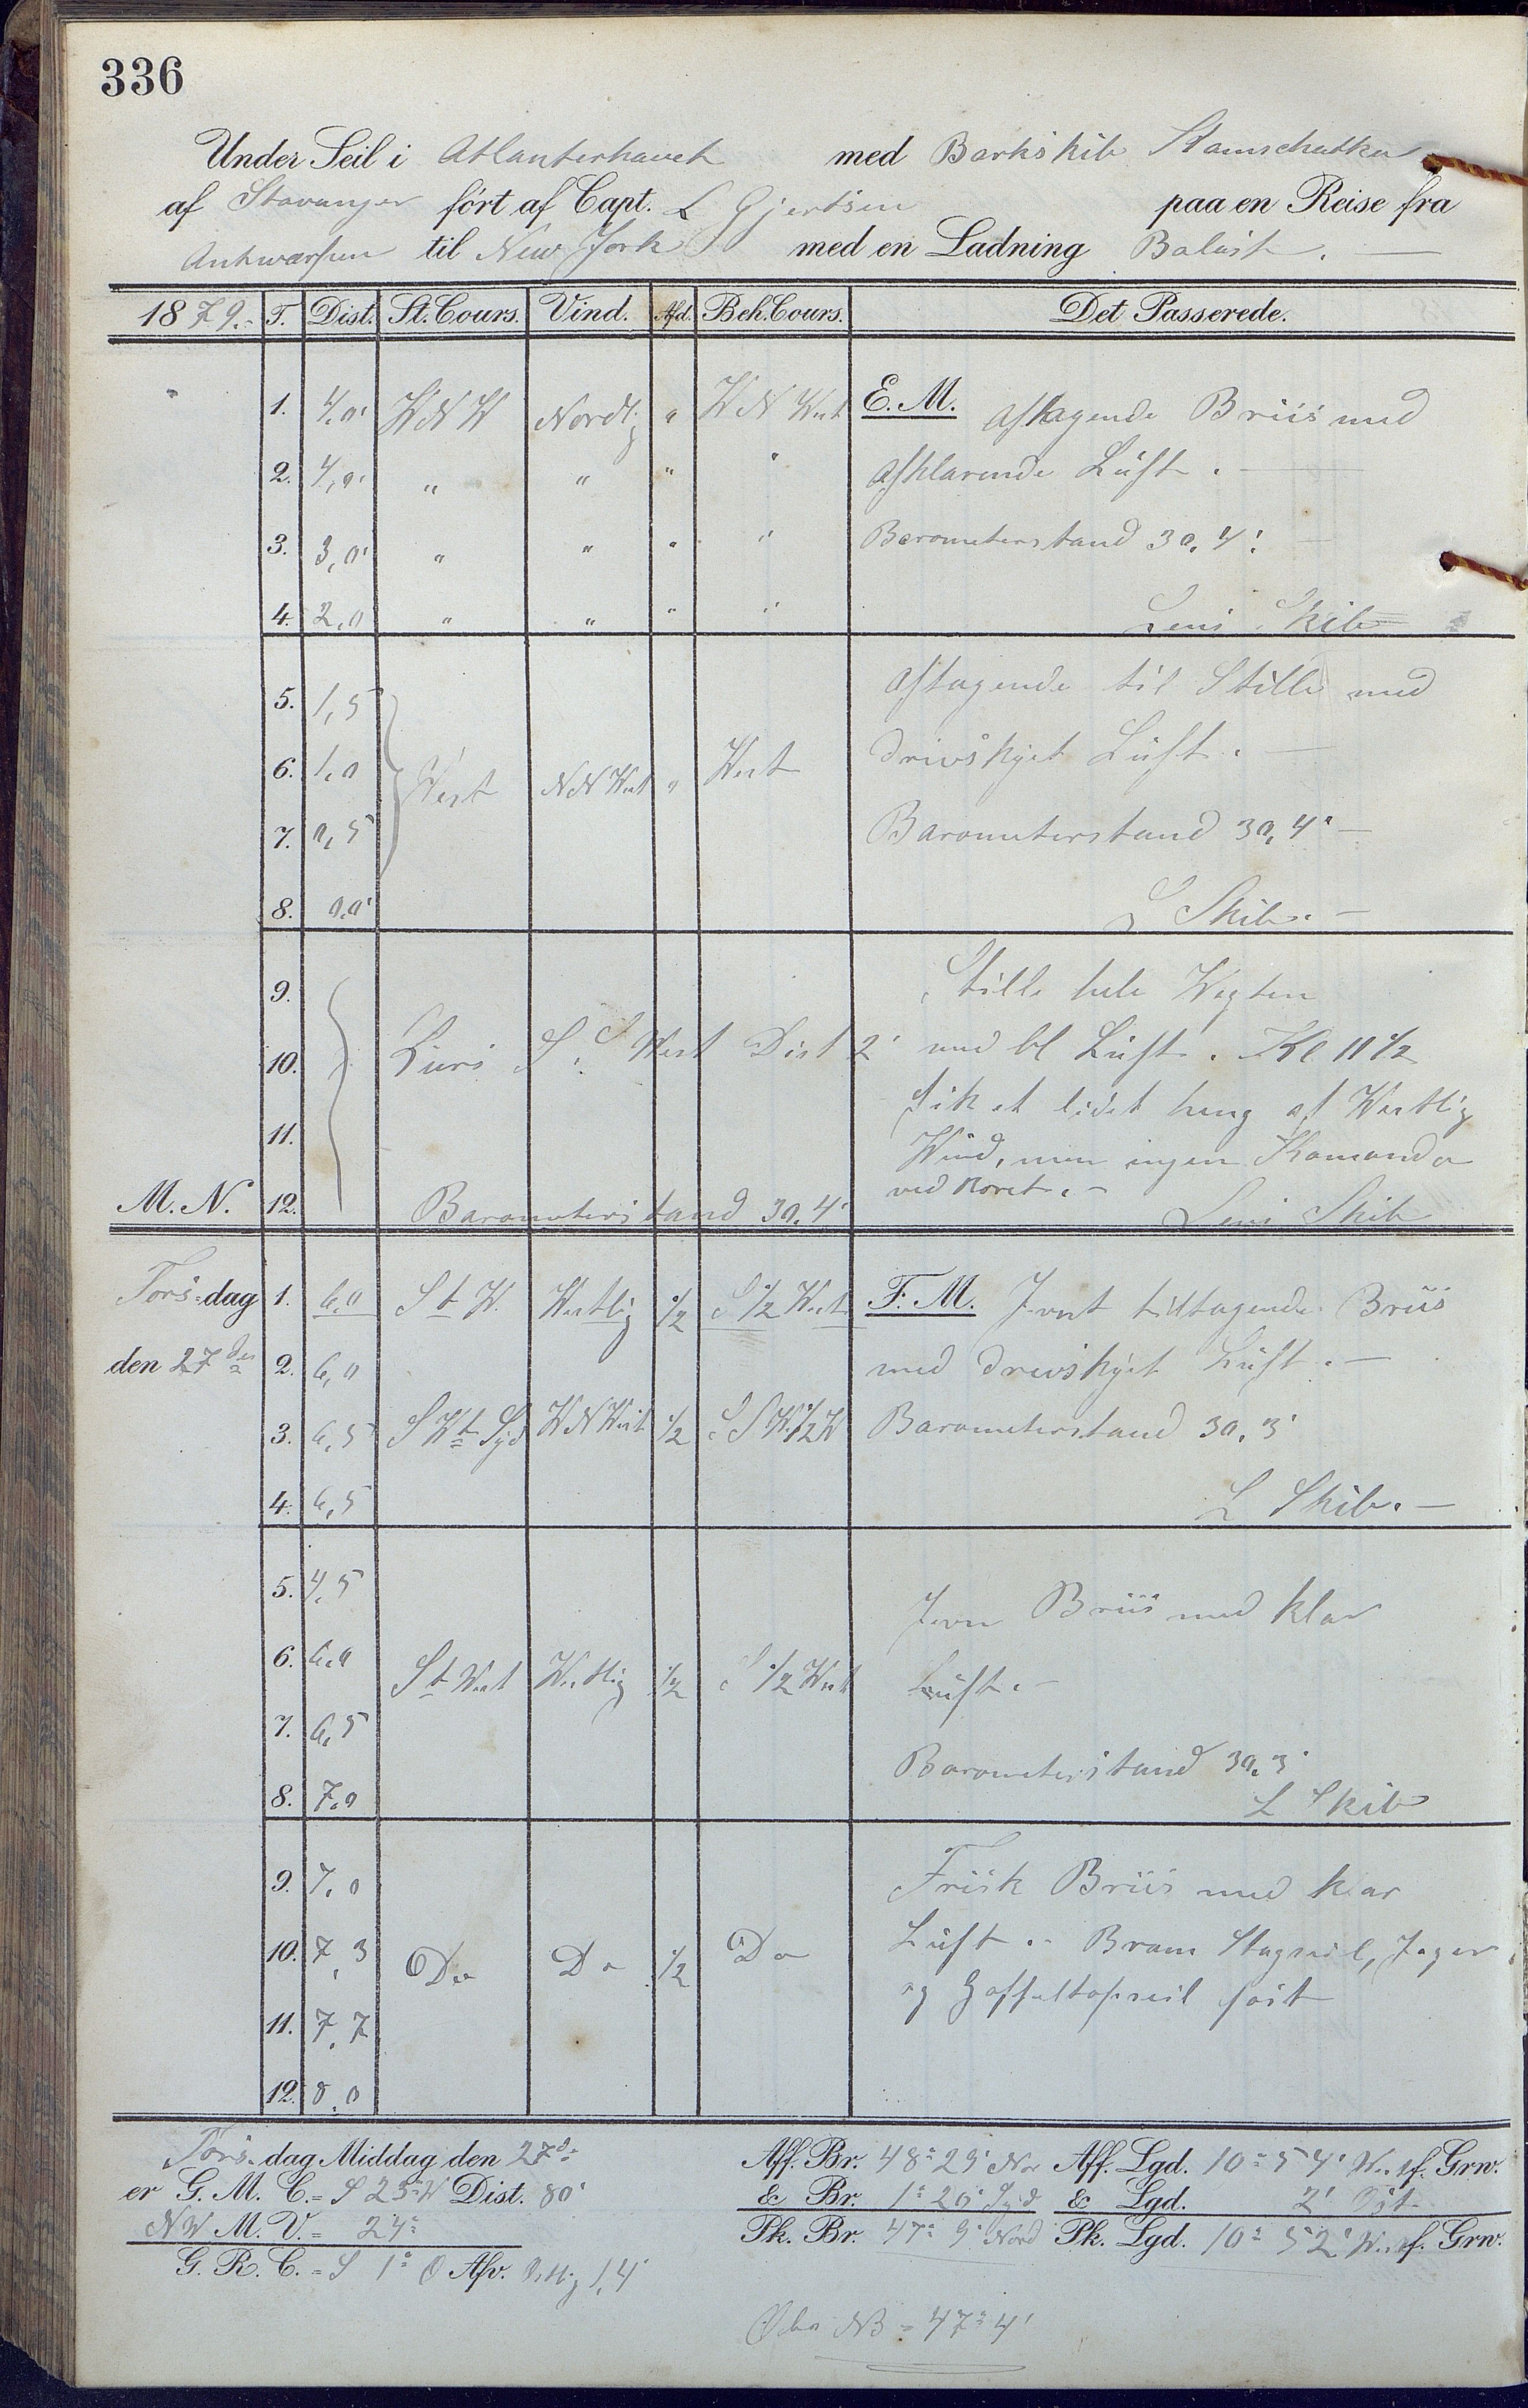 336
Under Seil i Atlanterhavet med Barkskib Kamschatka
af Stavanger ført af Capt. L Gjertsen paa en Reise fra
Antwerpen til New York med en Ladning Balast. —
1879. T. Dist. St. Cours. Vind. Afd. Beh. Cours. Det Passerede.
1. 4,0' WNW Nordlig " WN West E. M. Aftagende Briis med
2. 4,0' " " " " Afklarende Luft. —
3. 3,0' " " " " Barometerstand 30,4' —
4. 2,0 " " " " Lens Skib
5. 1,5 Aftagende til Stille med
6. 1,0 West NN West " West Drivskyet Luft. —
7. 0,5 Barometerstand 30,4" —
8. 0,0' L Skib. —
9. Stille hele Wagten
10. Kurs S. S West Dist 2' med bl Luft. Kl 11 1/2
11. fik et lidet heng af Westlig
Wind, men ingen Komando
M. N. 12. Barometerstand 30,4' ved Roret. — Lens Skib
Tors-dag 1. 6,0 S t W. Westlig 1/2 S 1/2 West F. M. Jevnt tiltagende Briis
den 27de 2. 6,0 med Drivskyet Luft. —
3. 6,5 S W t Syd WN West 1/2 S S W 1/2 W Barometerstand 30,3'
4. 6,5 L Skib. —
5. 4,5 Jevn Briis med klar
6. 6,0 S t West Westlig 1/2 S 1/2 West Luft. —
7. 6,5 Barometerstand 30,3'
8. 7,0 L Skib
9. 7,0 Frisk Briis med klar
10. 7,3 Do Do 1/2 Do Luft. — Bram Stagseil, Jager
11. 7,7 og Gaffeltopseil fast
12. 8,0
Tors-dag Middag den 27d: Aff. Br. 48° 29' No Aff. Lgd. 10° 54' W. f. Grw.
er G. M. C. = S 25° W Dist. 80' & Br. 1° 20' Syd & Lgd. 2' Øst
NW M. V. = 24° Pk. Br. 47° 9' Nord Pk. Lgd. 10° 52' W. f. Grw.
G. R. C. = S 1° O Afv. Østlig 1,4'
Obs NB = 47° 4'